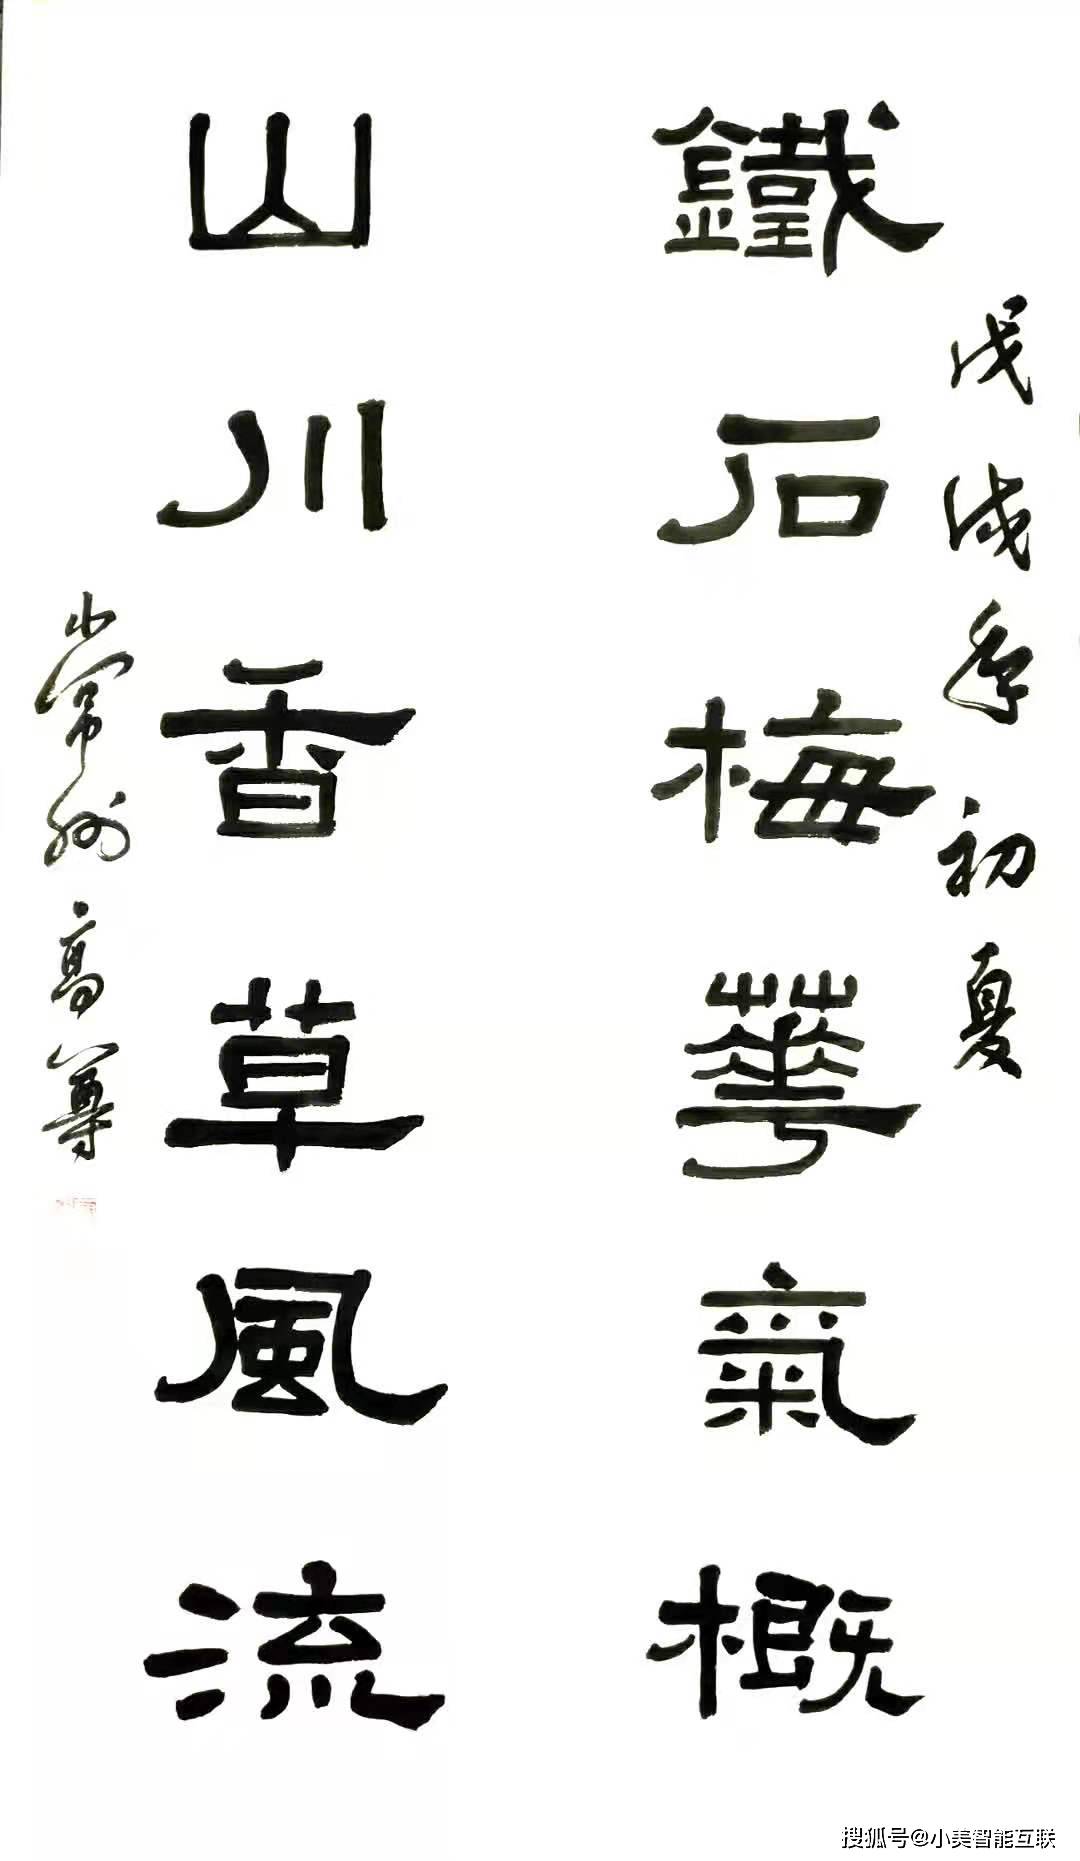 戊戌年初夏
鐵石梅華氣概
山川香草風流
常州高尊
搜狐号@小美智能互联